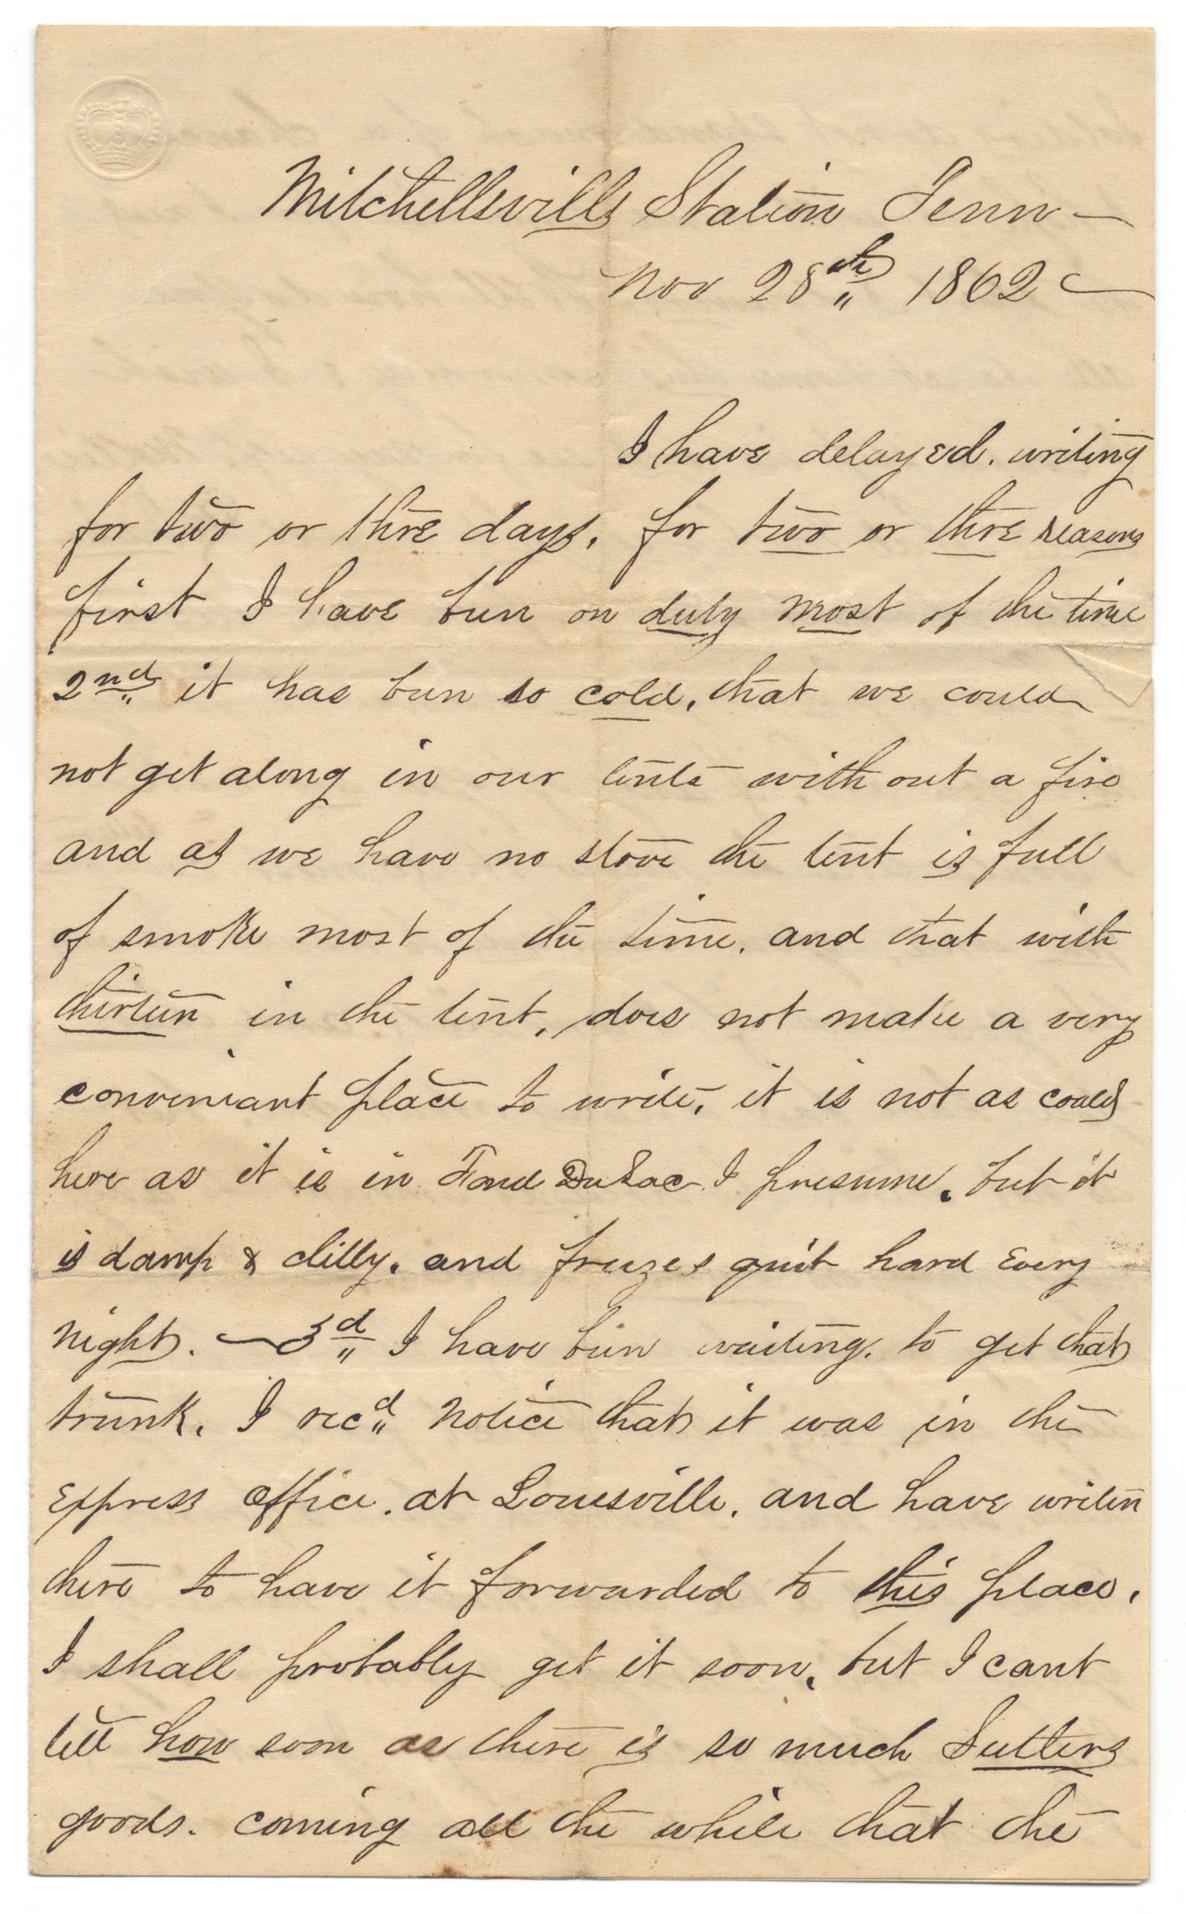 Mitchellsville Station Tenn —
Nov 28th 1862 —
I have delayed. writing
for two or thre days, for two or thre reasons
first I have bun on duty most of the time
2nd it has bun so cold, that we could
not get along in our tents with out a fire
and as we have no stove the tent is full
of smoke most of the time. and that with
thirteen in the tent, does not make a very
conveniant place to write, it is not as could
here as it is in Fond Du Lac I presume, but it
is damp & chilly. and freezes quit hard every
night. — 3d I have bin waiting. to get that
trunk. I recd notice that it was in the
express office. at Louesville. and have writen
there to have it forwarded to this place.
I shall probably get it soon, but I cant
tell how soon as there is so much Sutters
goods. coming all the while that the